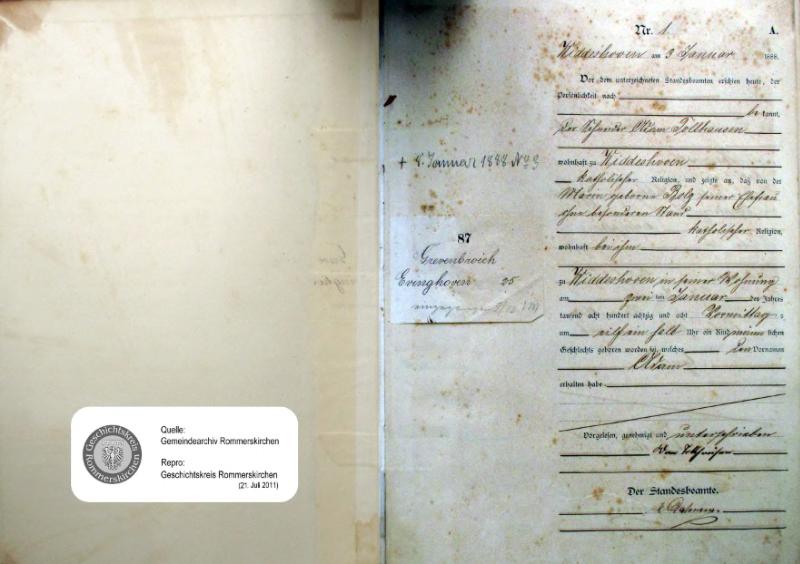 Geschichtskreis
Rommerskirchen
Quelle:
Gemeindearchiv Rommerskirchen
Repro:
Geschichtskreis Rommerskirchen
(21. Juli 2011)
+ 8. Januar 1888 No 3
87
Grevenbroich
Evinghoven 25
Nr. 1. A.
Widdeshoven am 3 Januar 1888.
Vor dem unterzeichneten Standesbeamten erschien heute, der
Persönlichkeit nach
be kannt,
der Schneider Adam
wohnhaft zu Widdeshoven
katholischer Religion, und zeigte an, daß von der
Maria geborne Bolz seiner Ehefrau
ohne besonderen Stand
katholischer Religion,
wohnhaft bei ihm
zu Widdeshoven in seiner Wohnung
am zwei ten Januar des Jahres
tausend acht hundert achtzig und acht Vormittag s
um eilf ein halb Uhr ein Kind männ lichen
Geschlechts geboren worden sei, welches den Vornamen
Adam
erhalten habe.
Vorgelesen, genehmigt und unterschrieben
Der Standesbeamte.